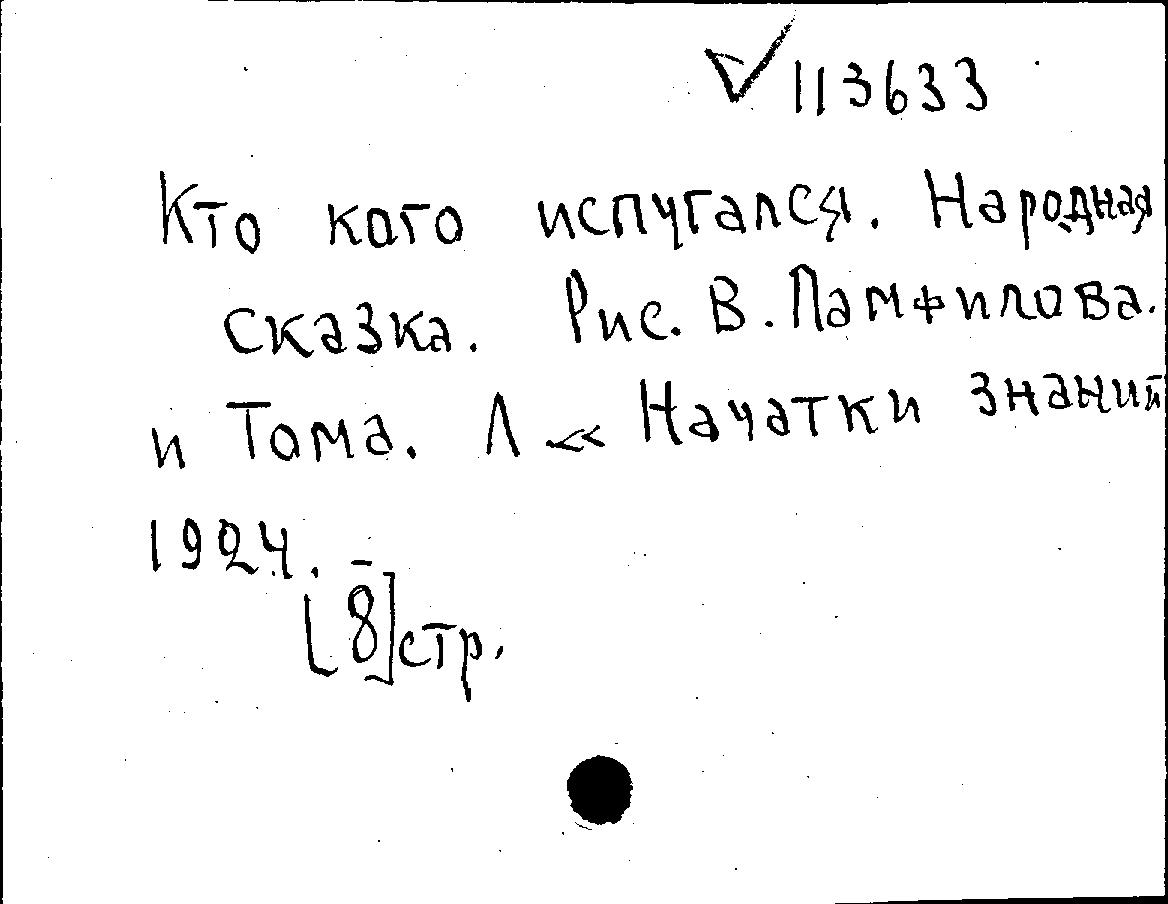 √ 113633
Кто кого испугался. Народная
сказка. Рис. В. Памфилова.
и Тома. Л « Начатки знаний
1924.
[8] стр.